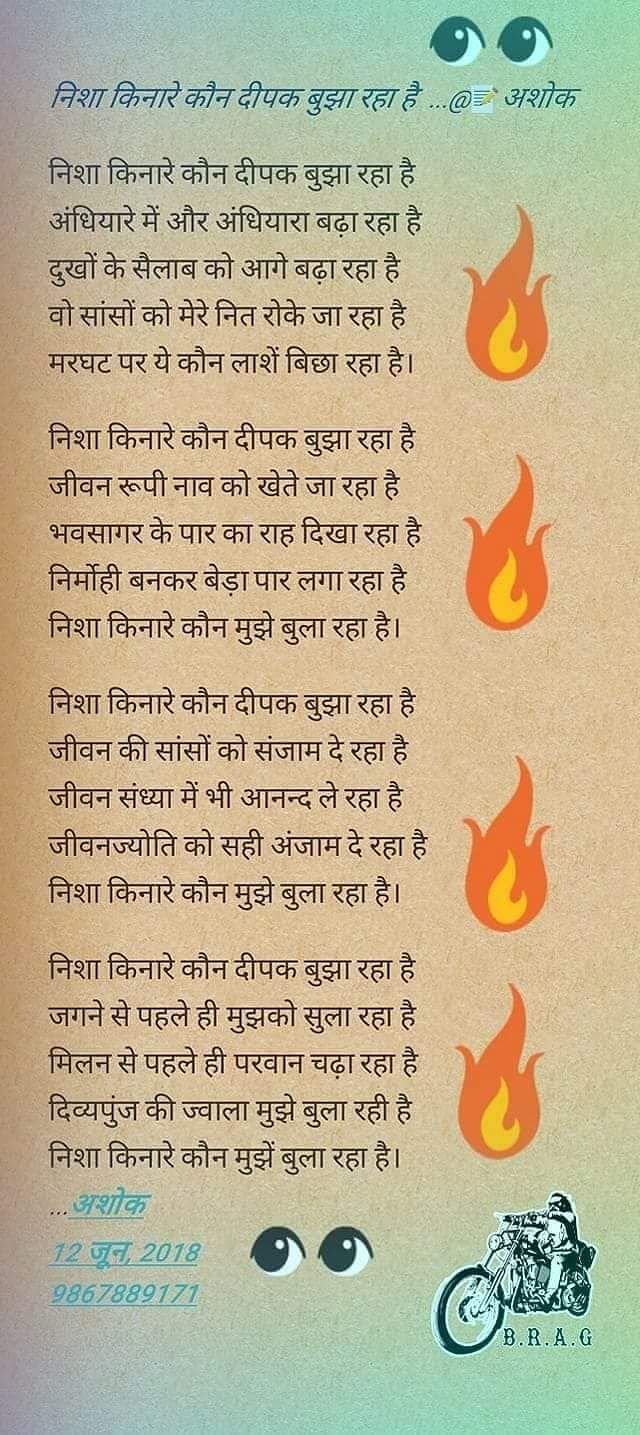 निशा किनारे कौन दीपक बुझा रहा है ...@📝 अशोक
निशा किनारे कौन दीपक बुझा रहा है
अंधियारे में और अंधियारा बढ़ा रहा है
दुखों के सैलाब को आगे बढ़ा रहा है
वो सांसों को मेरे नित रोके जा रहा है
मरघट पर ये कौन लाशें बिछा रहा है।
निशा किनारे कौन दीपक बुझा रहा है
जीवन रूपी नाव को खेते जा रहा है
भवसागर के पार का राह दिखा रहा है
निर्मोही बनकर बेड़ा पार लगा रहा है
निशा किनारे कौन मुझे बुला रहा है।
निशा किनारे कौन दीपक बुझा रहा है
जीवन की सांसों को संजाम दे रहा है
जीवन संध्या में भी आनन्द ले रहा है
जीवनज्योति को सही अंजाम दे रहा है
निशा किनारे कौन मुझे बुला रहा है।
निशा किनारे कौन दीपक बुझा रहा है
जगने से पहले ही मुझको सुला रहा है
मिलन से पहले ही परवान चढ़ा रहा है
दिव्यपुंज की ज्वाला मुझे बुला रही है
निशा किनारे कौन मुझें बुला रहा है।
...अशोक
12 जून, 2018
9867889171
B.R.A.G